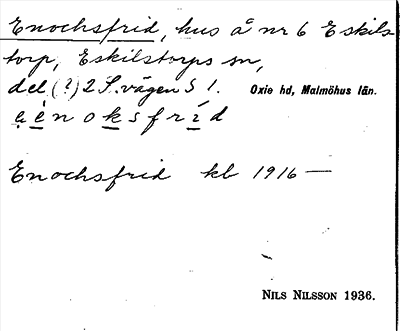 Enochsfrid, hus å nr 6 Eskils
torp, Eskilstorps sn,
del (?) 2 S. vägen S 1. Oxie hd, Malmöhus län.
e é n o k s f r í d
Enochsfrid kb 1916 —
NILS NILSSON 1936.